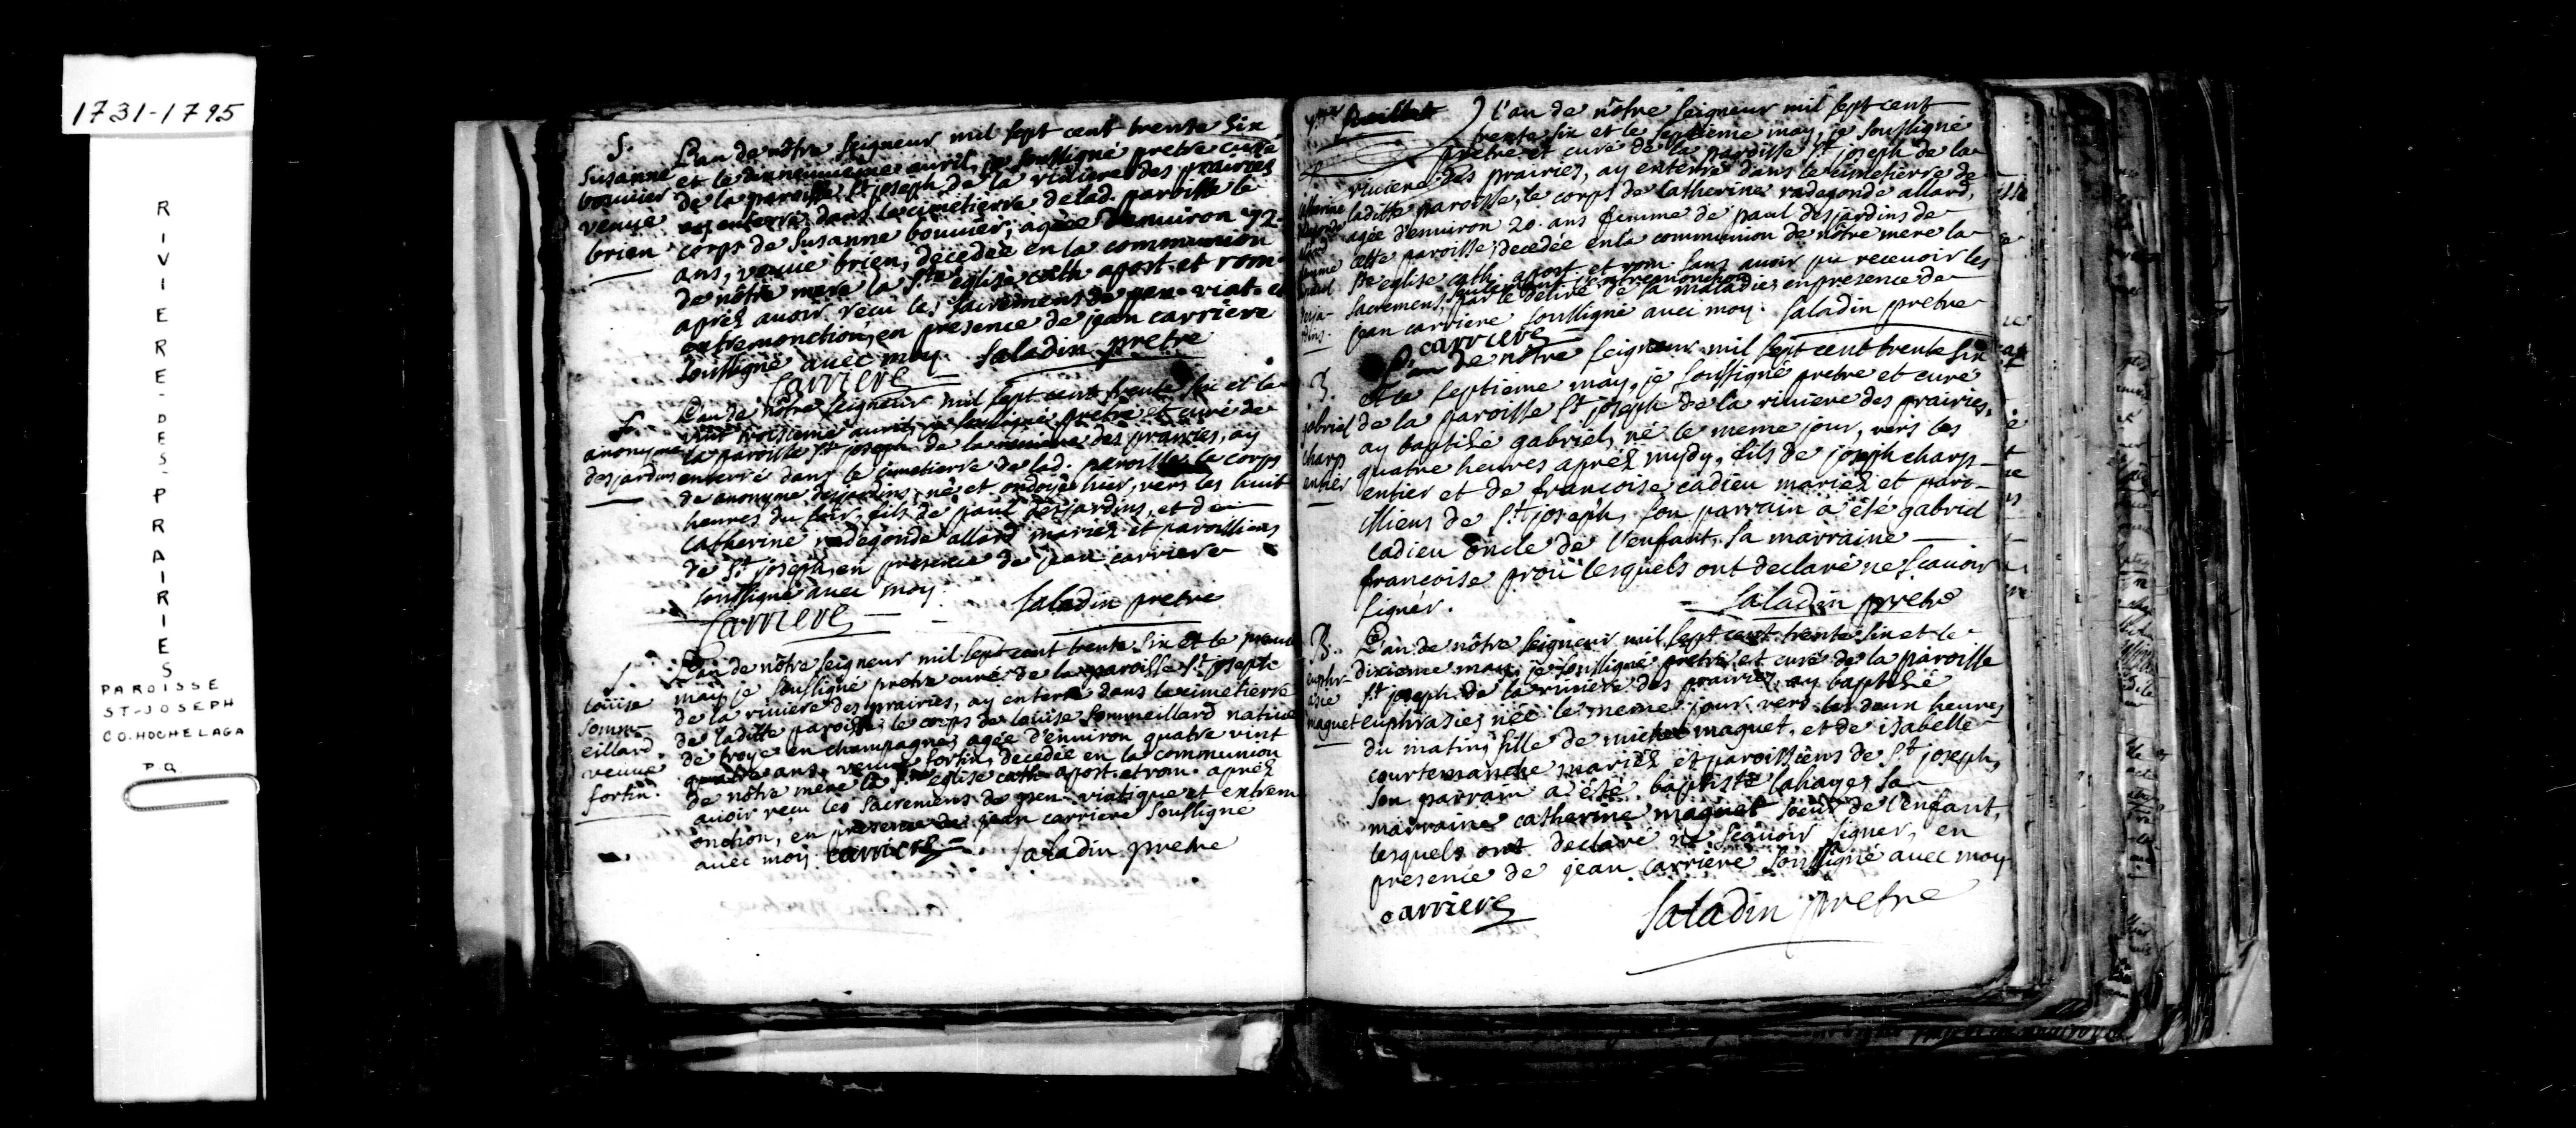 1731-1795
RIVIERE-DES-PRAIRIES
PAROISSE
ST-JOSEPH
CO. HOCHELAGA
P.Q
S.
Susanne
bouuier
veuue
brien
L'an de nôtre seigneur mil sept cent trente six
et le dixneuuieme auril, je soussigné pretre curé
de la paroisse St joseph de la riuiere des prairies
ay enterré dans le cimetierre de lad. paroisse le
corps de Susanne bouuier, agée d'enuiron 92
ans, veuue brien, decedée en la communion
de nôtre mere la Ste eglise cath. apost. et rom.
apréz auoir reçu les sacremens de pen. viat. et
extremonction, en presence de jean carriere
soussigné auec moy. Saladin pretre
Carriere
S.
anonyme
desjardins
L'an de nôtre seigneur mil sept cent trente six et le
vint troisieme auril, je soussigné pretre et curé de
la paroisse St joseph de la riuiere des prairies, ay
enterré dans le cimetierre de lad. paroisse le corps
de anonyme desjardins, né et ondoyé hier, vers les huit
heures du soir, fils de paul desjardins, et de
Catherine radegonde allard mariez et paroissiens
de St joseph, en presence de jean carriere
soussigné auec moy.
Saladin pretre
Carriere
S.
Loüise
Somm-
eillard
veuue
fortin.
L'an de nôtre seigneur mil sept cent trente six et le premier
may je soussigné pretre curé de la paroisse St joseph
de la riuiere des prairies, ay enterré dans le cimetierre
de laditte paroisse, le corps de Loüise Sommeillard natiue
de troye en champagne, agée d'enuiron quatre vint
quatre ans, veuue fortin, decedée en la communion
de nôtre mere la Ste eglise cath. apost. et rom. apréz
auoir reçu les sacremens de pen. viatique et extrem
onction, en presence de jean carriere soussigné
auec moy. Carriere Saladin pretre
feuillet
Catherine
radegonde
allard
femme
paul
desja-
rdins.
l'an de nôtre seigneur mil sept cent
trente six et le septieme may, je soussigné
pretre et curé de la paroisse St joseph de la
riuiere des prairies, ay enterré dans le cimetierre de
laditte paroisse, le corps de Catherine radegonde allard,
agée d'enuiron 20. ans femme de paul desjardins de
cette paroisse, decedée en la communion de nôtre mere la
Ste eglise cath. apost. et rom. sans auoir pu receuoir les
seulement l'extremonction
sacremens, par le delire de sa maladie, en presence de
jean carriere soussigné auec moy. Saladin pretre
carriere
B.
gabriel
charp
entier
L'an de nôtre seigneur mil sept cent trente six
et le septieme may, je soussigné pretre et curé
de la paroisse St joseph de la riuiere des prairies,
ay baptizé gabriel, né le meme jour, vers les
quatre heures apréz mydy, fils de joseph charp-
entier et de françoise cadieu mariez et paro-
issiens de St joseph, son parrain a été gabriel
cadieu oncle de l'enfant, sa marraine
françoise proü lesquels ont declaré ne sçauoir
signer.
Saladin pretre
B.
euphr-
asie
maguet
L'an de nôtre seigneur mil sept cent trente six et le
dixieme may, je soussigné pretre et curé de la paroisse
St joseph de la riuiere des prairies, ay baptizé
euphrasie, née le meme jour vers les deux heures
du matin, fille de michel maguet, et de isabelle
courtemanche mariez et paroissiens de St joseph,
son parrain a été baptiste lahaye, sa
marraine catherine maguet soeur de l'enfant,
lesquels ont declaré ne sçauoir signer, en
presence de jean carriere soussigné auec moy
carriere
Saladin pretre